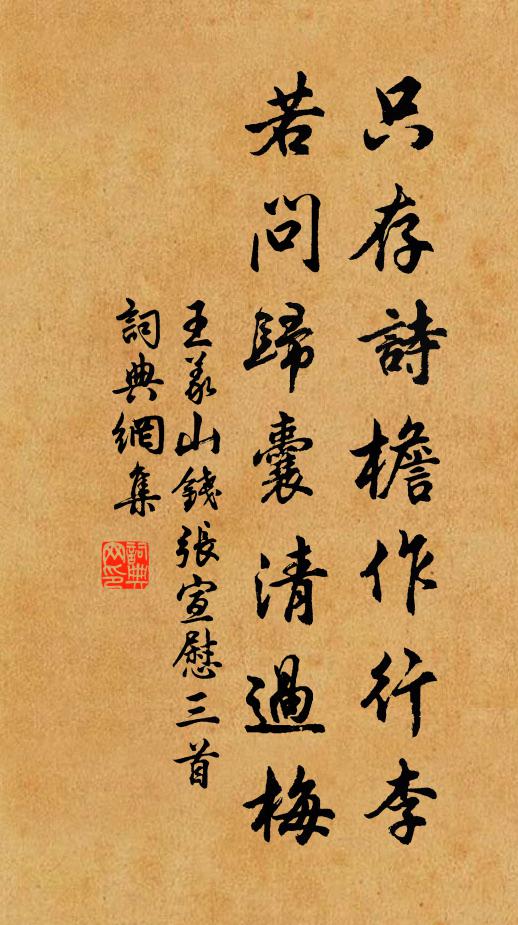 只存詩檐作行李
若問歸囊清過梅
王義山餞張宣慰三首
詞典網集
詞典網印